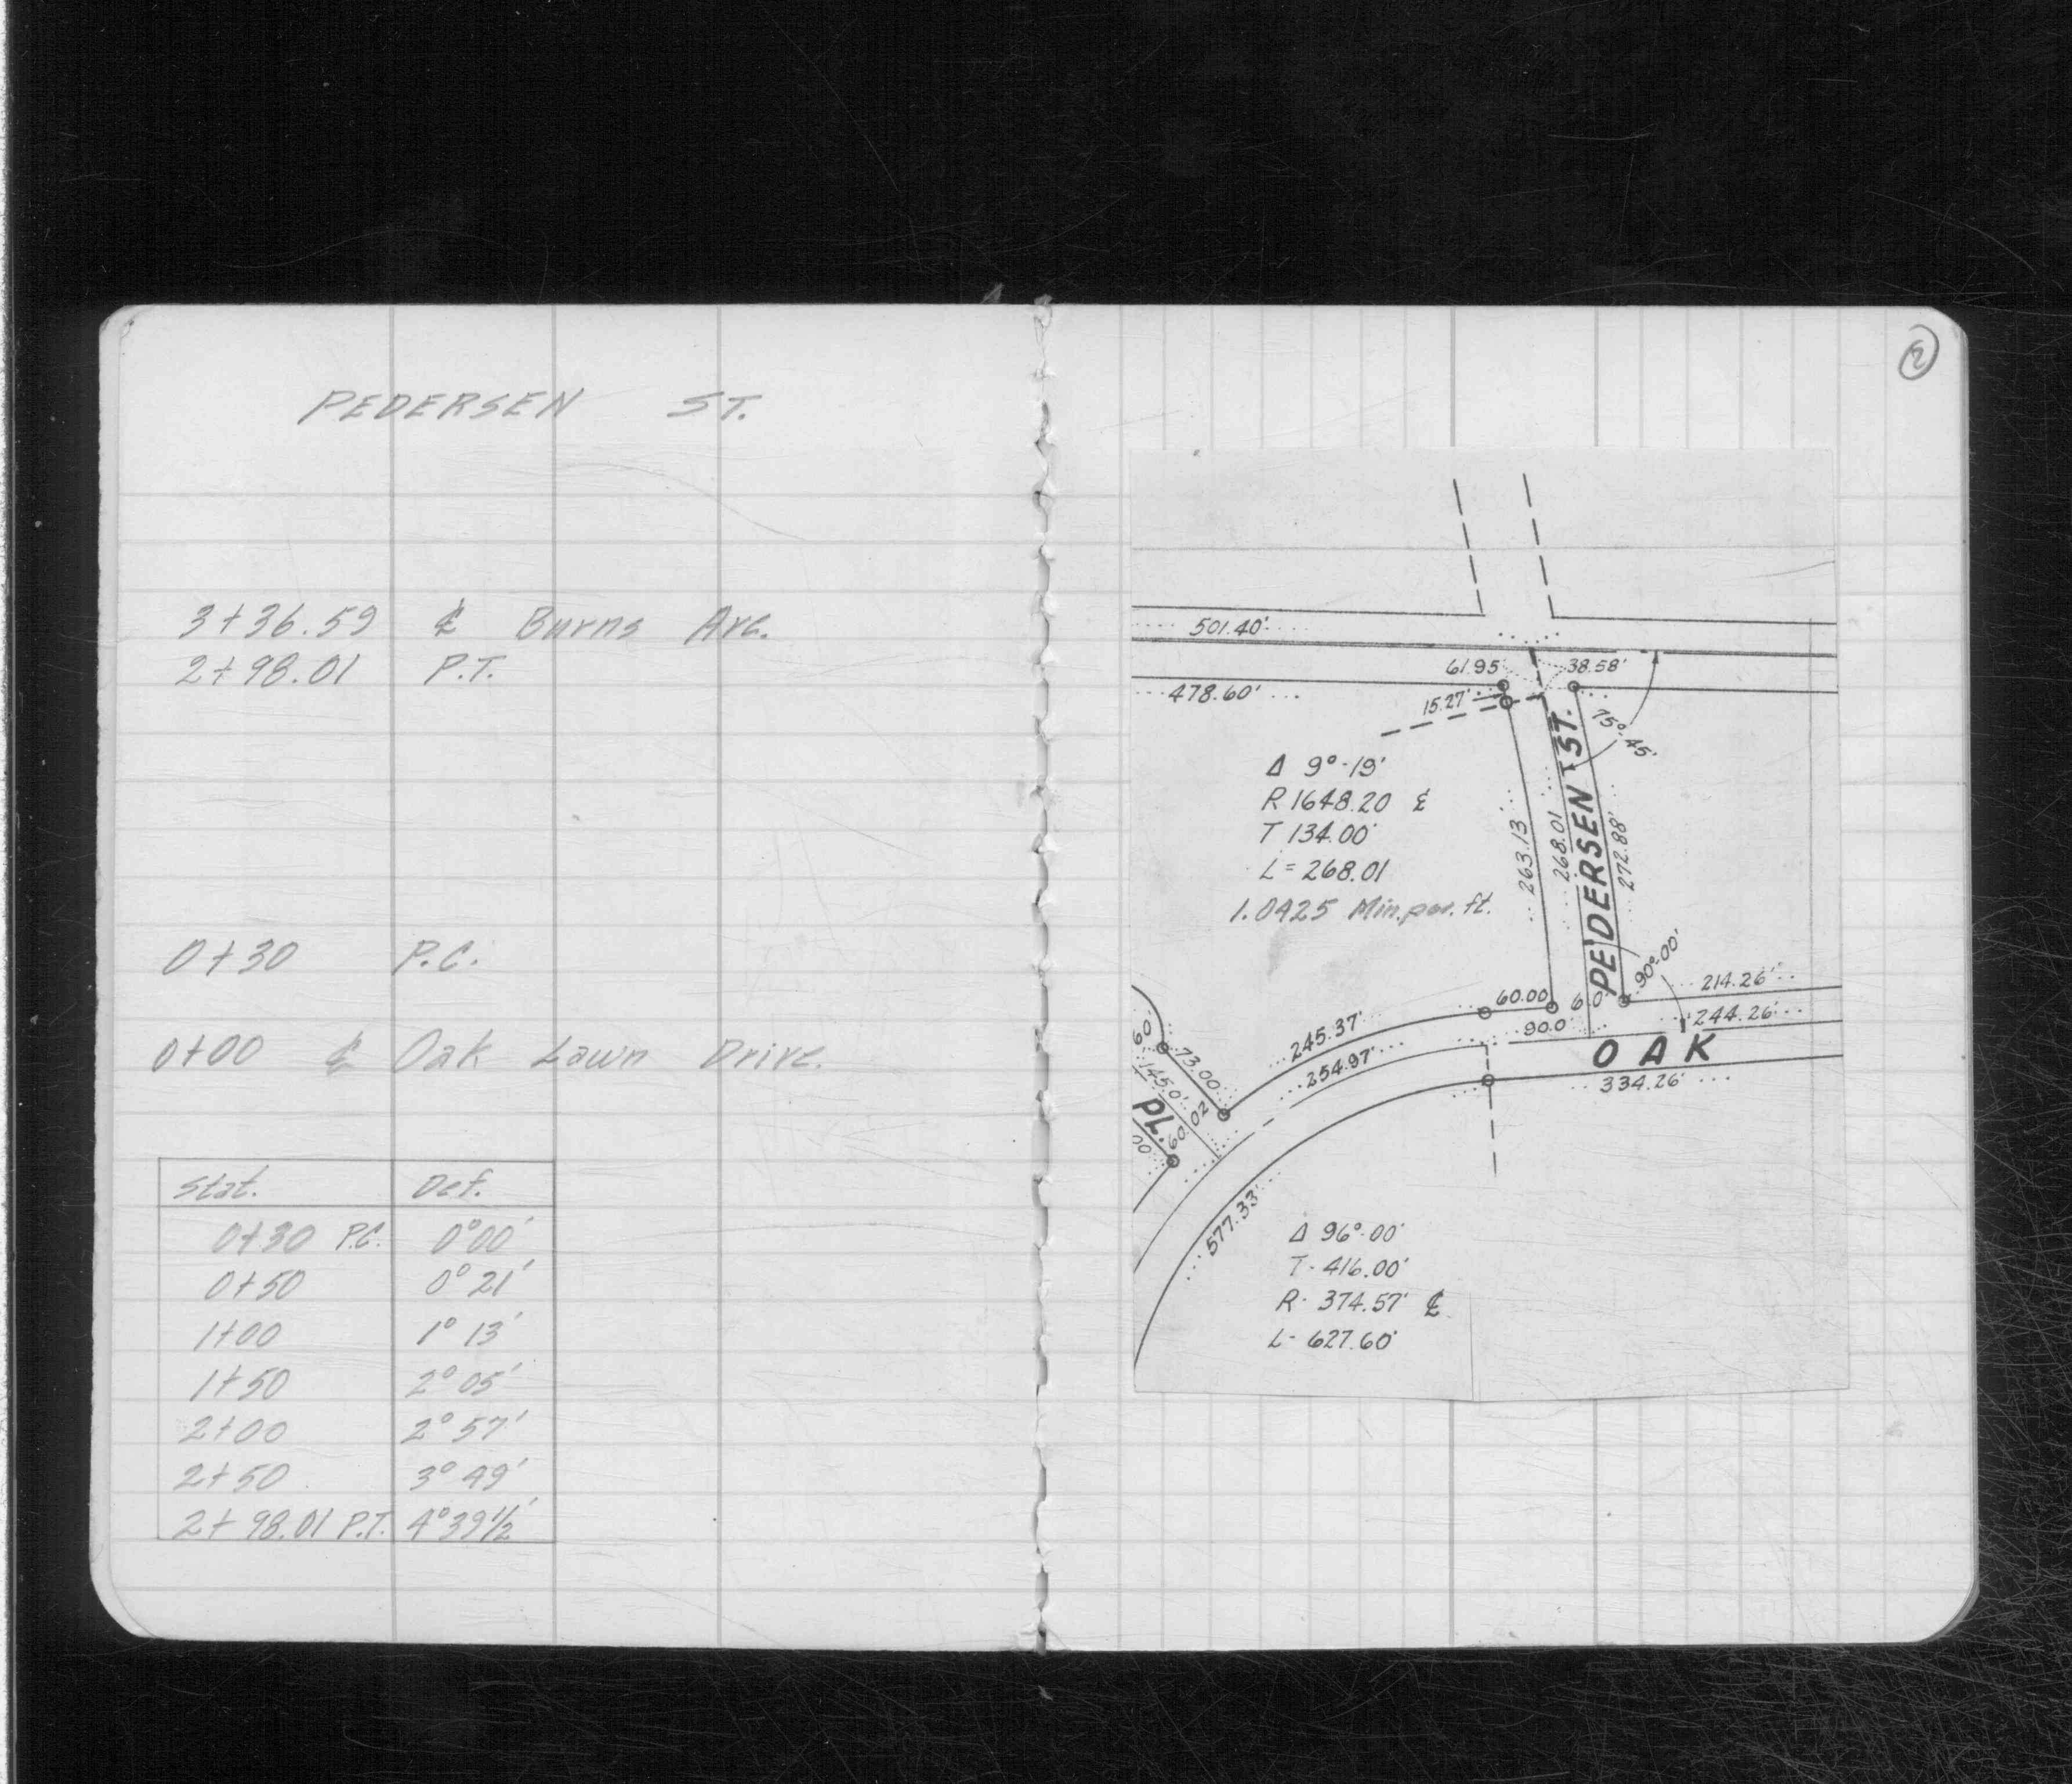 PEDERSEN ST.
3+36.59 ℄ Burns Ave.
2+98.01 P.T.
0+30 P.C.
0+00 ℄ Oak Lawn Drive.
Stat. Def.
0+30 P.C. 0°00'
0+50 0°21'
1+00 1°13'
1+50 2°05'
2+00 2°57'
2+50 3°49'
2+98.01 P.T. 4°39½'
2
501.40'
61.95' 38.58'
478.60'
15.27'
75°-45'
Δ 9°-19'
R 1648.20 ℄
T 134.00'
L = 268.01
1.0425 Min. per. ft.
263.13
268.01
PEDERSEN ST.
272.88'
90°-00'
60.00 6.0'
214.26'
90.0
244.26'
245.37'
254.97'
OAK
334.26'
60'
73.00'
145.0'
60.02
PL.
00
577.33'
Δ 96°-00'
T- 416.00'
R- 374.57' ℄
L- 627.60'